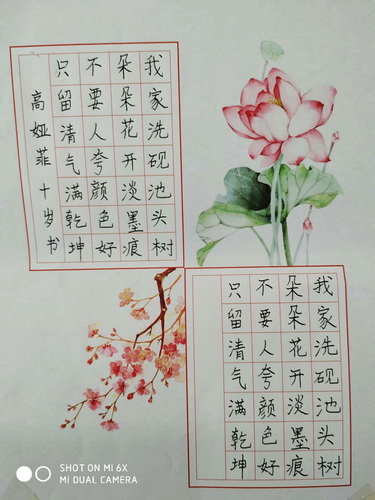 我家洗砚池头树
朵朵花开淡墨痕
不要人夸颜色好
只留清气满乾坤
高娅菲十岁书
我家洗砚池头树
朵朵花开淡墨痕
不要人夸颜色好
只留清气满乾坤
SHOT ON MI 6X
MI DUAL CAMERA